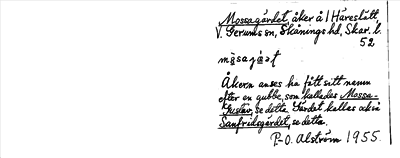 Mossagärdet, åker å 1 Häreslätt,
V. Gerums sn, Skånings hd, Skar. l.
52
måsajäᵃt
Åkern anses ha fått sitt namn
efter en gubbe, som kallades Mossa-
Gustav, se detta. Gärdet kallas också
Sanfridsgärdet, se detta.
P-O. Alström 1955.